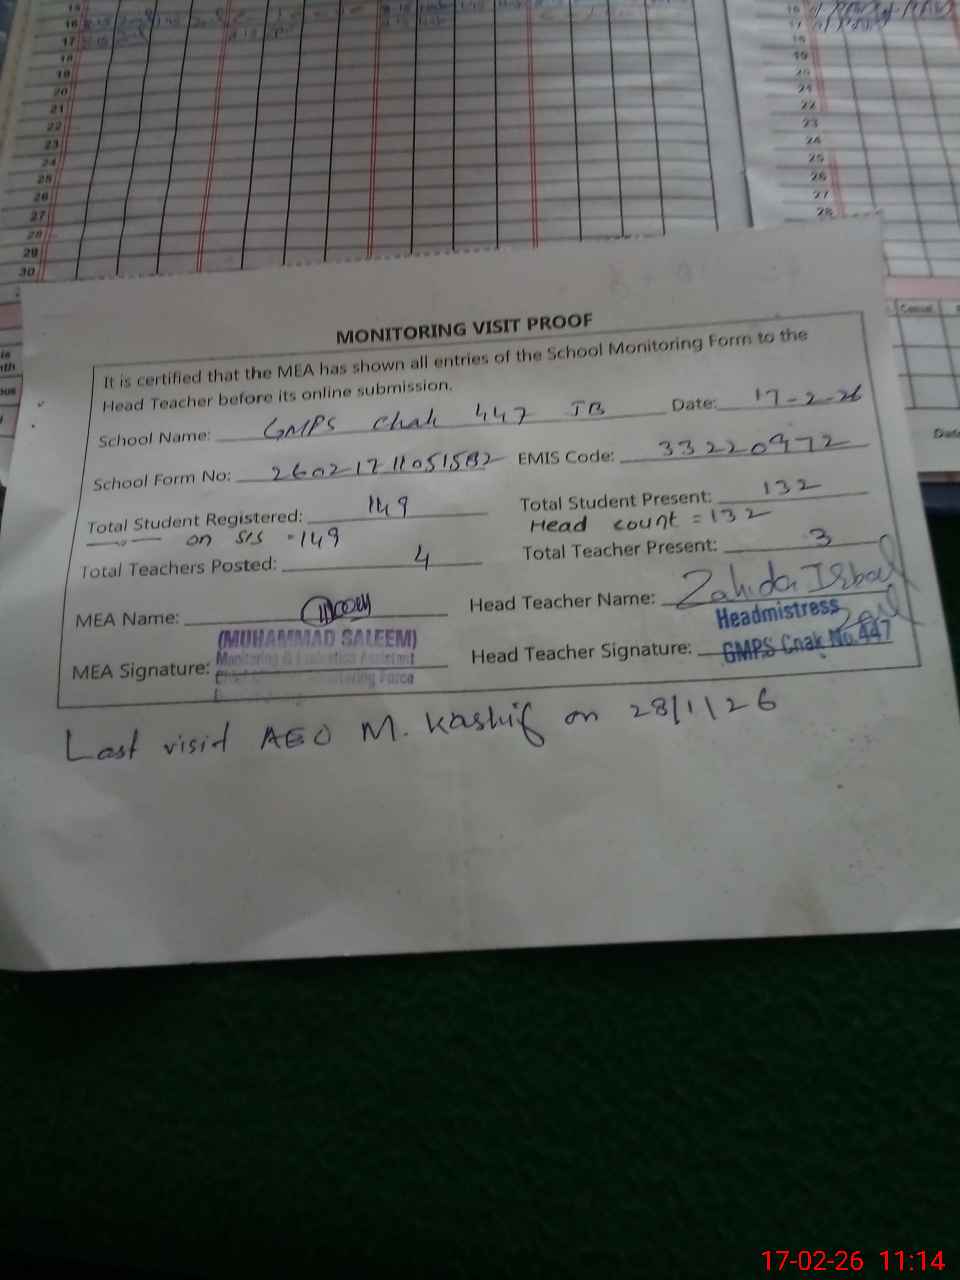 15
16
17
18
19
20
21
22
23
24
25
26
27
28
29
30
16
17
18
19
20
21
22
23
24
25
26
27
28
Casual
MONITORING VISIT PROOF
It is certified that the MEA has shown all entries of the School Monitoring Form to the
Head Teacher before its online submission.
School Name: GMPS Chak 447 JB Date: 17-2-26
School Form No: EMIS Code: 33220972
Total Student Registered: 149 Total Student Present: 132
on SIS = 149 Head count = 132
Total Teachers Posted: 4 Total Teacher Present: 3
MEA Name: Head Teacher Name: Zahida
(MUHAMMAD SALEEM) Headmistress
Monitoring & Evaluation Assistant
MEA Signature: Head Teacher Signature: GMPS Chak No.447
Monitoring Force
Last visit AEO M. Kashif on 28/1/26
17-02-26 11:14